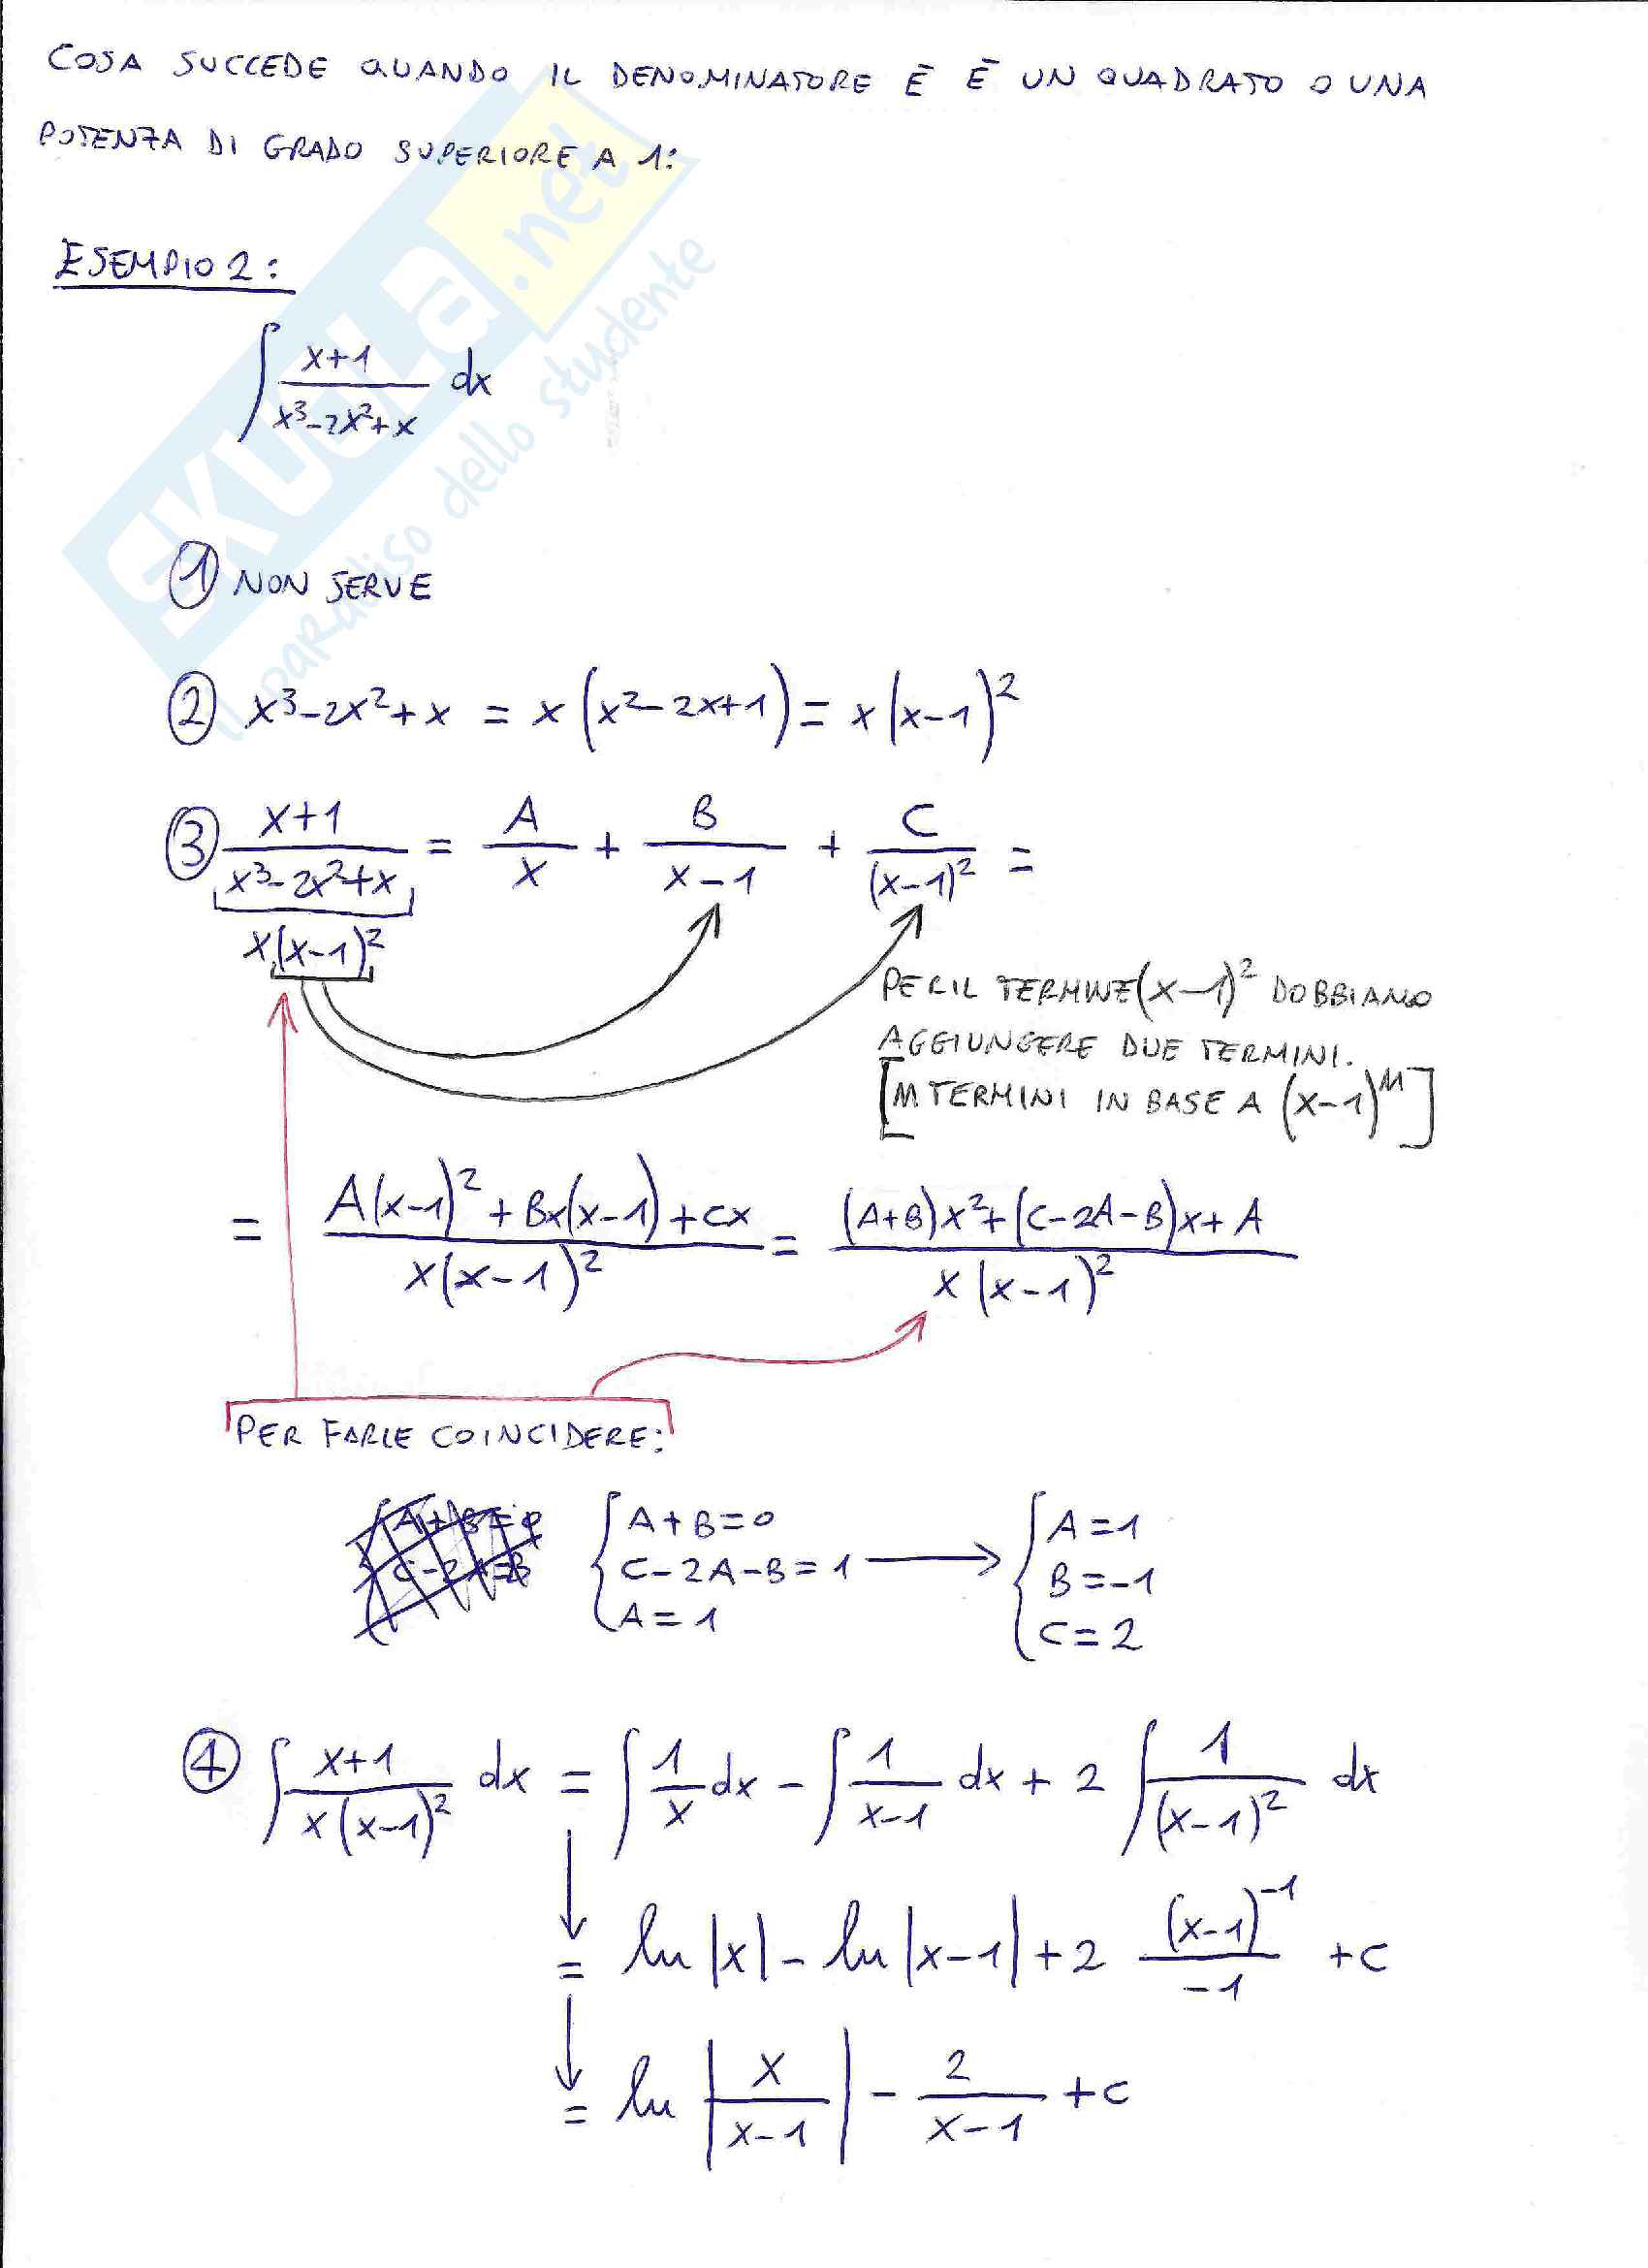 COSA SUCCEDE QUANDO IL DENOMINATORE È È UN QUADRATO O UNA
POTENZA DI GRADO SUPERIORE A 1:
SKUOLA.net
il paradiso dello studente
ESEMPIO 2:
∫ (x+1)/(x³-2x²+x) dx
① NON SERVE
② x³-2x²+x = x(x²-2x+1) = x(x-1)²
③ (x+1)/(x³-2x²+x) = A/x + B/(x-1) + C/(x-1)² =
x(x-1)²
PER IL TERMINE (x-1)² DOBBIAMO
AGGIUNGERE DUE TERMINI.
[M TERMINI IN BASE A (x-1)ᴹ]
= (A(x-1)²+Bx(x-1)+Cx)/(x(x-1)²) = ((A+B)x²+(C-2A-B)x+A)/(x(x-1)²)
PER FARLE COINCIDERE:
{ A+B=0
C-2A-B=1 →
A=1
{ A=1
B=-1
C=2
④ ∫ (x+1)/(x(x-1)²) dx = ∫ 1/x dx - ∫ 1/(x-1) dx + 2 ∫ 1/(x-1)² dx
= ln|x| - ln|x-1| + 2 (x-1)⁻¹/-1 + c
= ln|x/(x-1)| - 2/(x-1) + c